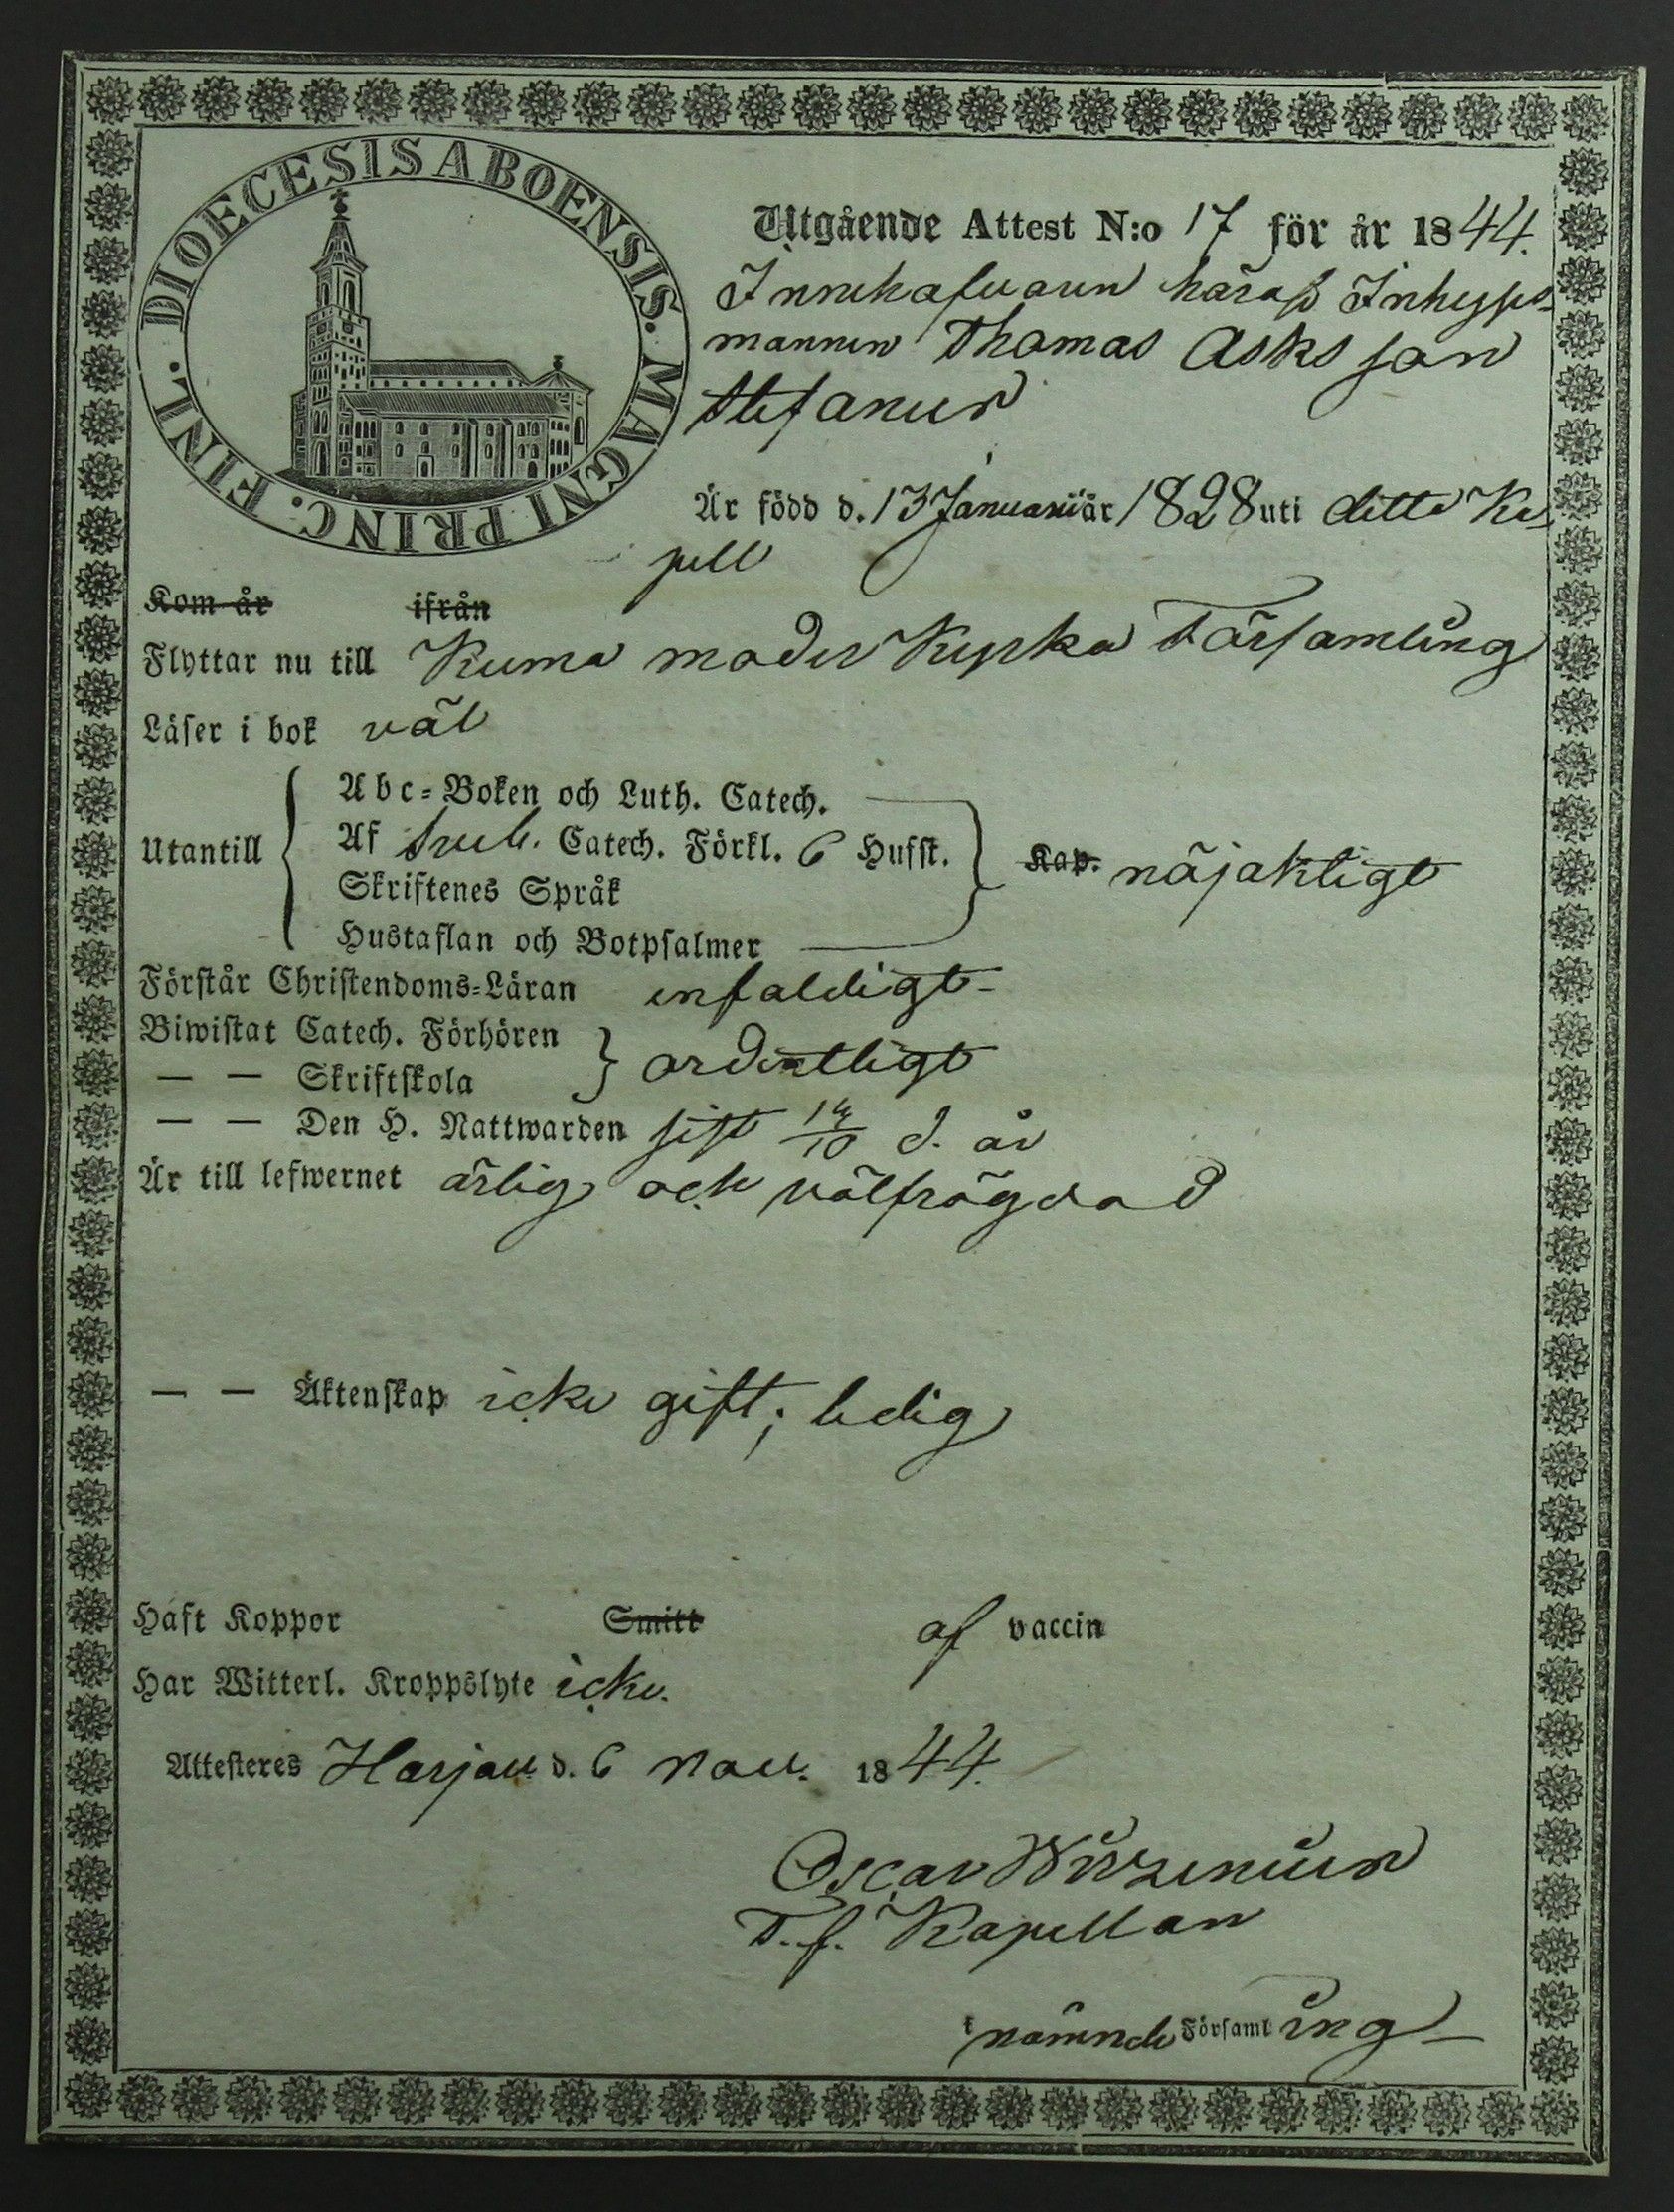 DIOECESIS ABOENSIS. MAGNI PRINC. FINL.
Utgående Attest N:o 17 för år 1844.
Innehafvaren häraf Inhyses-
mannen Thomas Asks son
Stefanus
Är född d. 13 Januarii år 1828 uti ditto Ka-
pell
Kom år ifrån
Flyttar nu till Kumo moder Kyrko Församling
Läser i bok väl
Utantill
Abc-Boken och Luth. Catech.
Af Sveb. Catech. Förkl. 6 Hufst.
Skriftenes Språk
Hustaflan och Botpsalmer
Kap. nöjaktigt
Förstår Christendoms-Läran enfaldigt-
Biwistat Catech. Förhören
— — Skriftskola
ordentligt
— — Den H. Nattwarden sist 14/10 d. år
Är till lefwernet ärlig och välfrägdad
— — Äktenskap icke gift; ledig
Haft Koppor Smitt af vaccin
Har Witterl. Kroppslyte icke.
Attesteres Harjav. d. 6 Nov. 1844.
Oscar
T.f. Kapellan
i nämnde Församling-